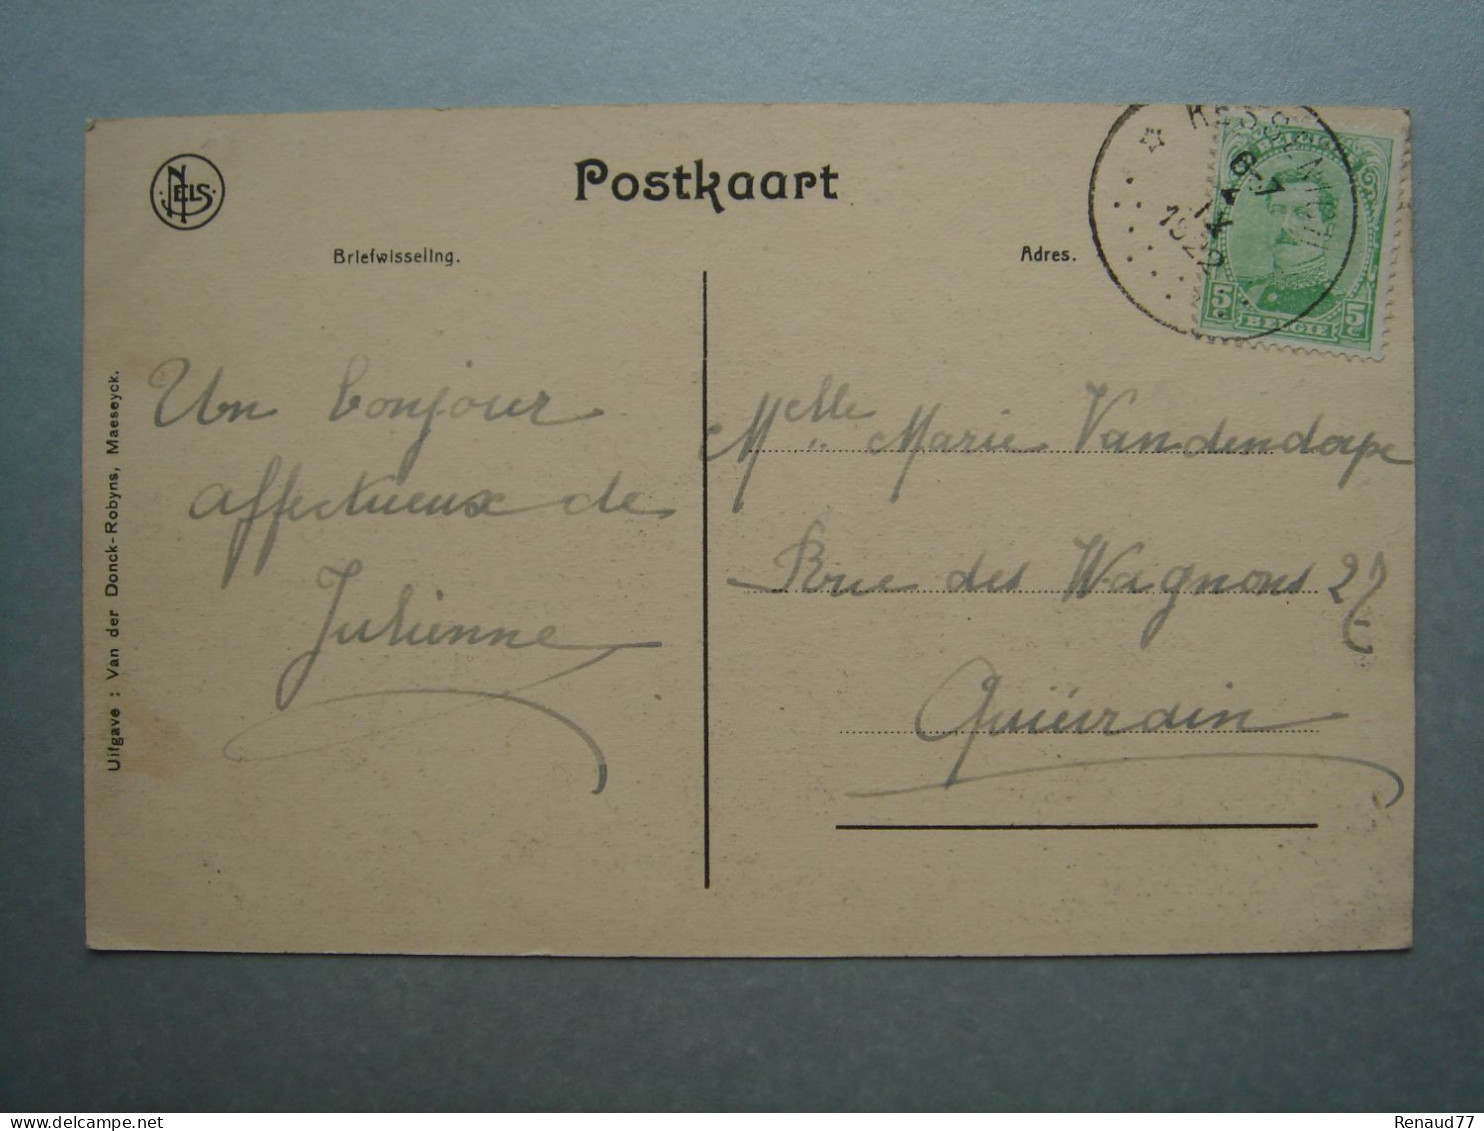 NELS
Postkaart
Briefwisseling.
Adres.
KESSENICH
1920
BELGIE
5c
5c
Un bonjour
affectueux de
Julienne
Melle Marie Vandendorpe
Rue des Wagnons 27
Quiévrain
Uitgave : Van der Donck-Robyns, Maeseyck.
delcampe.net
Renaud77